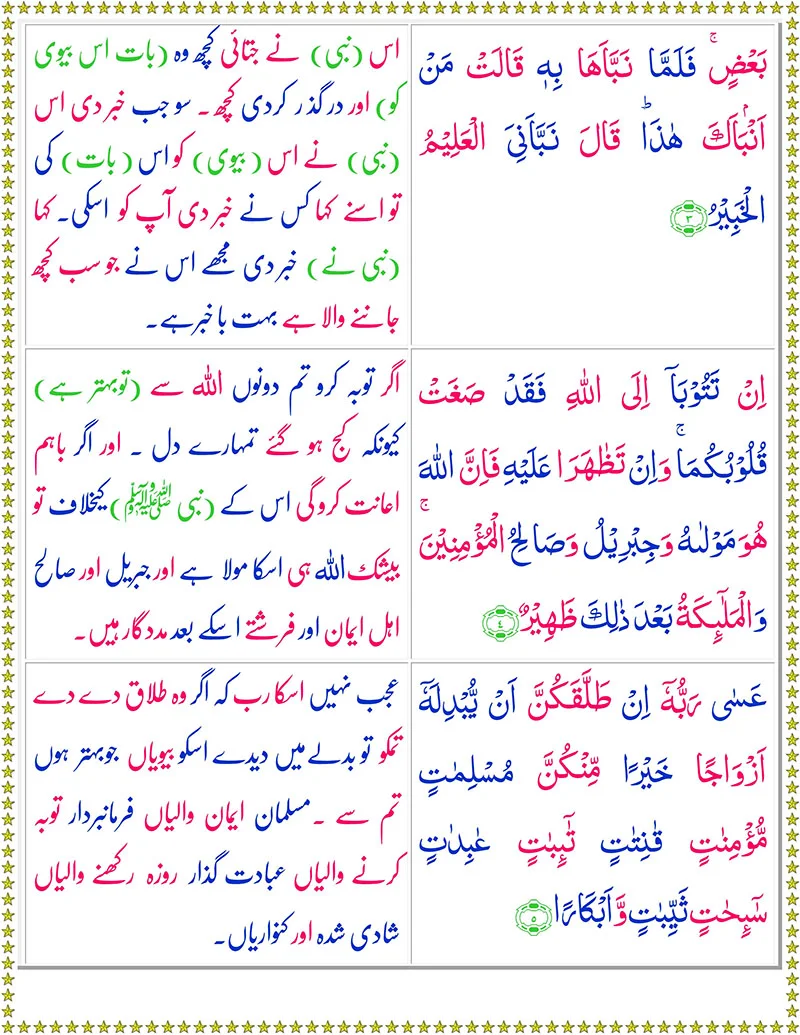 بَعْضٍ ۚ فَلَمَّا نَبَّاَهَا بِهٖ قَالَتْ مَنْ
اَنْۢبَاَكَ هٰذَا ؕ قَالَ نَبَّاَنِیَ الْعَلِیْمُ
الْخَبِیْرُ ﴿۳﴾
اس (نبی) نے جتائی کچھ وہ (بات اس بیوی
کو) اور درگذر کردی کچھ۔ سو جب خبر دی اس
(نبی) نے اس (بیوی) کو اس (بات) کی
تو اسنے کہا کس نے خبر دی آپ کو اسکی۔ کہا
(نبی نے) خبر دی مجھے اس نے جو سب کچھ
جاننے والا ہے بہت باخبر ہے۔
اِنْ تَتُوْبَاۤ اِلَی اللّٰهِ فَقَدْ صَغَتْ
قُلُوْبُكُمَا ۚ وَاِنْ تَظٰهَرَا عَلَیْهِ فَاِنَّ اللّٰهَ
هُوَ مَوْلٰىهُ وَجِبْرِیْلُ وَصَالِحُ الْمُؤْمِنِیْنَ ۚ
وَالْمَلٰٓىِٕكَةُ بَعْدَ ذٰلِكَ ظَهِیْرٌ ﴿۴﴾
اگر توبہ کرو تم دونوں اللہ سے (تو بہتر ہے)
کیونکہ کج ہو گئے تمہارے دل ۔ اور اگر باہم
اعانت کرو گی اس کے (نبی ﷺ) کیخلاف تو
بیشک اللہ ہی اسکا مولا ہے اور جبریل اور صالح
اہل ایمان اور فرشتے اسکے بعد مددگار ہیں۔
عَسٰی رَبُّهٗۤ اِنْ طَلَّقَكُنَّ اَنْ یُّبْدِلَهٗۤ
اَزْوَاجًا خَیْرًا مِّنْكُنَّ مُسْلِمٰتٍ
مُّؤْمِنٰتٍ قٰنِتٰتٍ تٰٓىِٕبٰتٍ عٰبِدٰتٍ
سٰٓىِٕحٰتٍ ثَیِّبٰتٍ وَّاَبْكَارًا ﴿۵﴾
عجب نہیں اسکا رب کہ اگر وہ طلاق دے دے
تمکو تو بدلے میں دیدے اسکو بیویاں جو بہتر ہوں
تم سے ۔ مسلمان ایمان والیاں فرمانبردار توبہ
کرنے والیاں عبادت گذار روزہ رکھنے والیاں
شادی شدہ اور کنواریاں۔